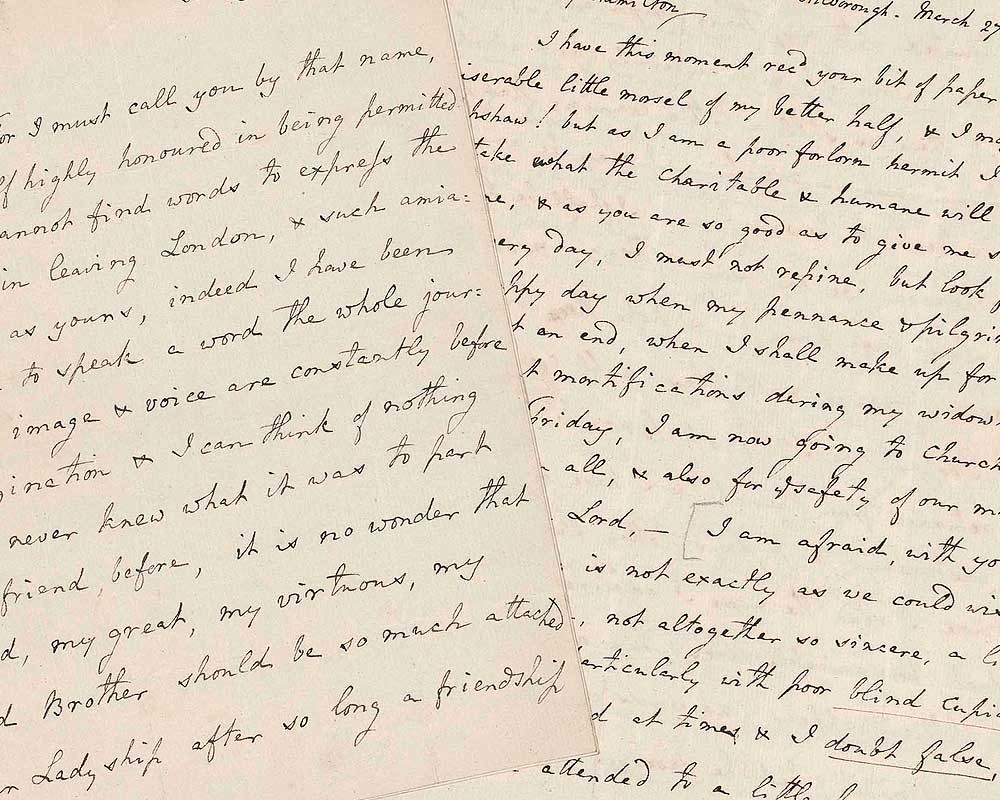 or I must call you by that name,
highly honoured in being permitted
annot find words to express the
in leaving London, & such amia=
as yours, indeed I have been
to speak a word the whole jour=
image & voice are constantly before
gination & I can think of nothing
never knew what it was to part
friend, before, it is no wonder that
d, my great, my virtuous, my
d Brother should be so much attached
Ladyship after so long a friendship
amilton
borough. March 27
I have this moment rec'd your bit of paper
iserable little morsel of my better half, & I
hshaw! but as I am a poor forlorn hermit I
take what the charitable & humane will
me, & as you are so good as to give me
ery day, I must not repine, but look
ppy day when my pennance & pilgrim
t an end, when I shall make up for
t mortifications during my widow
Friday, I am now going to Church
all, & also for ye safety of our
Lord, — I am afraid, with yo
is not exactly as we could wis
, not altogether so sincere, a li
articularly with poor blind Cupid
d at times & I doubt false,
attended to a little